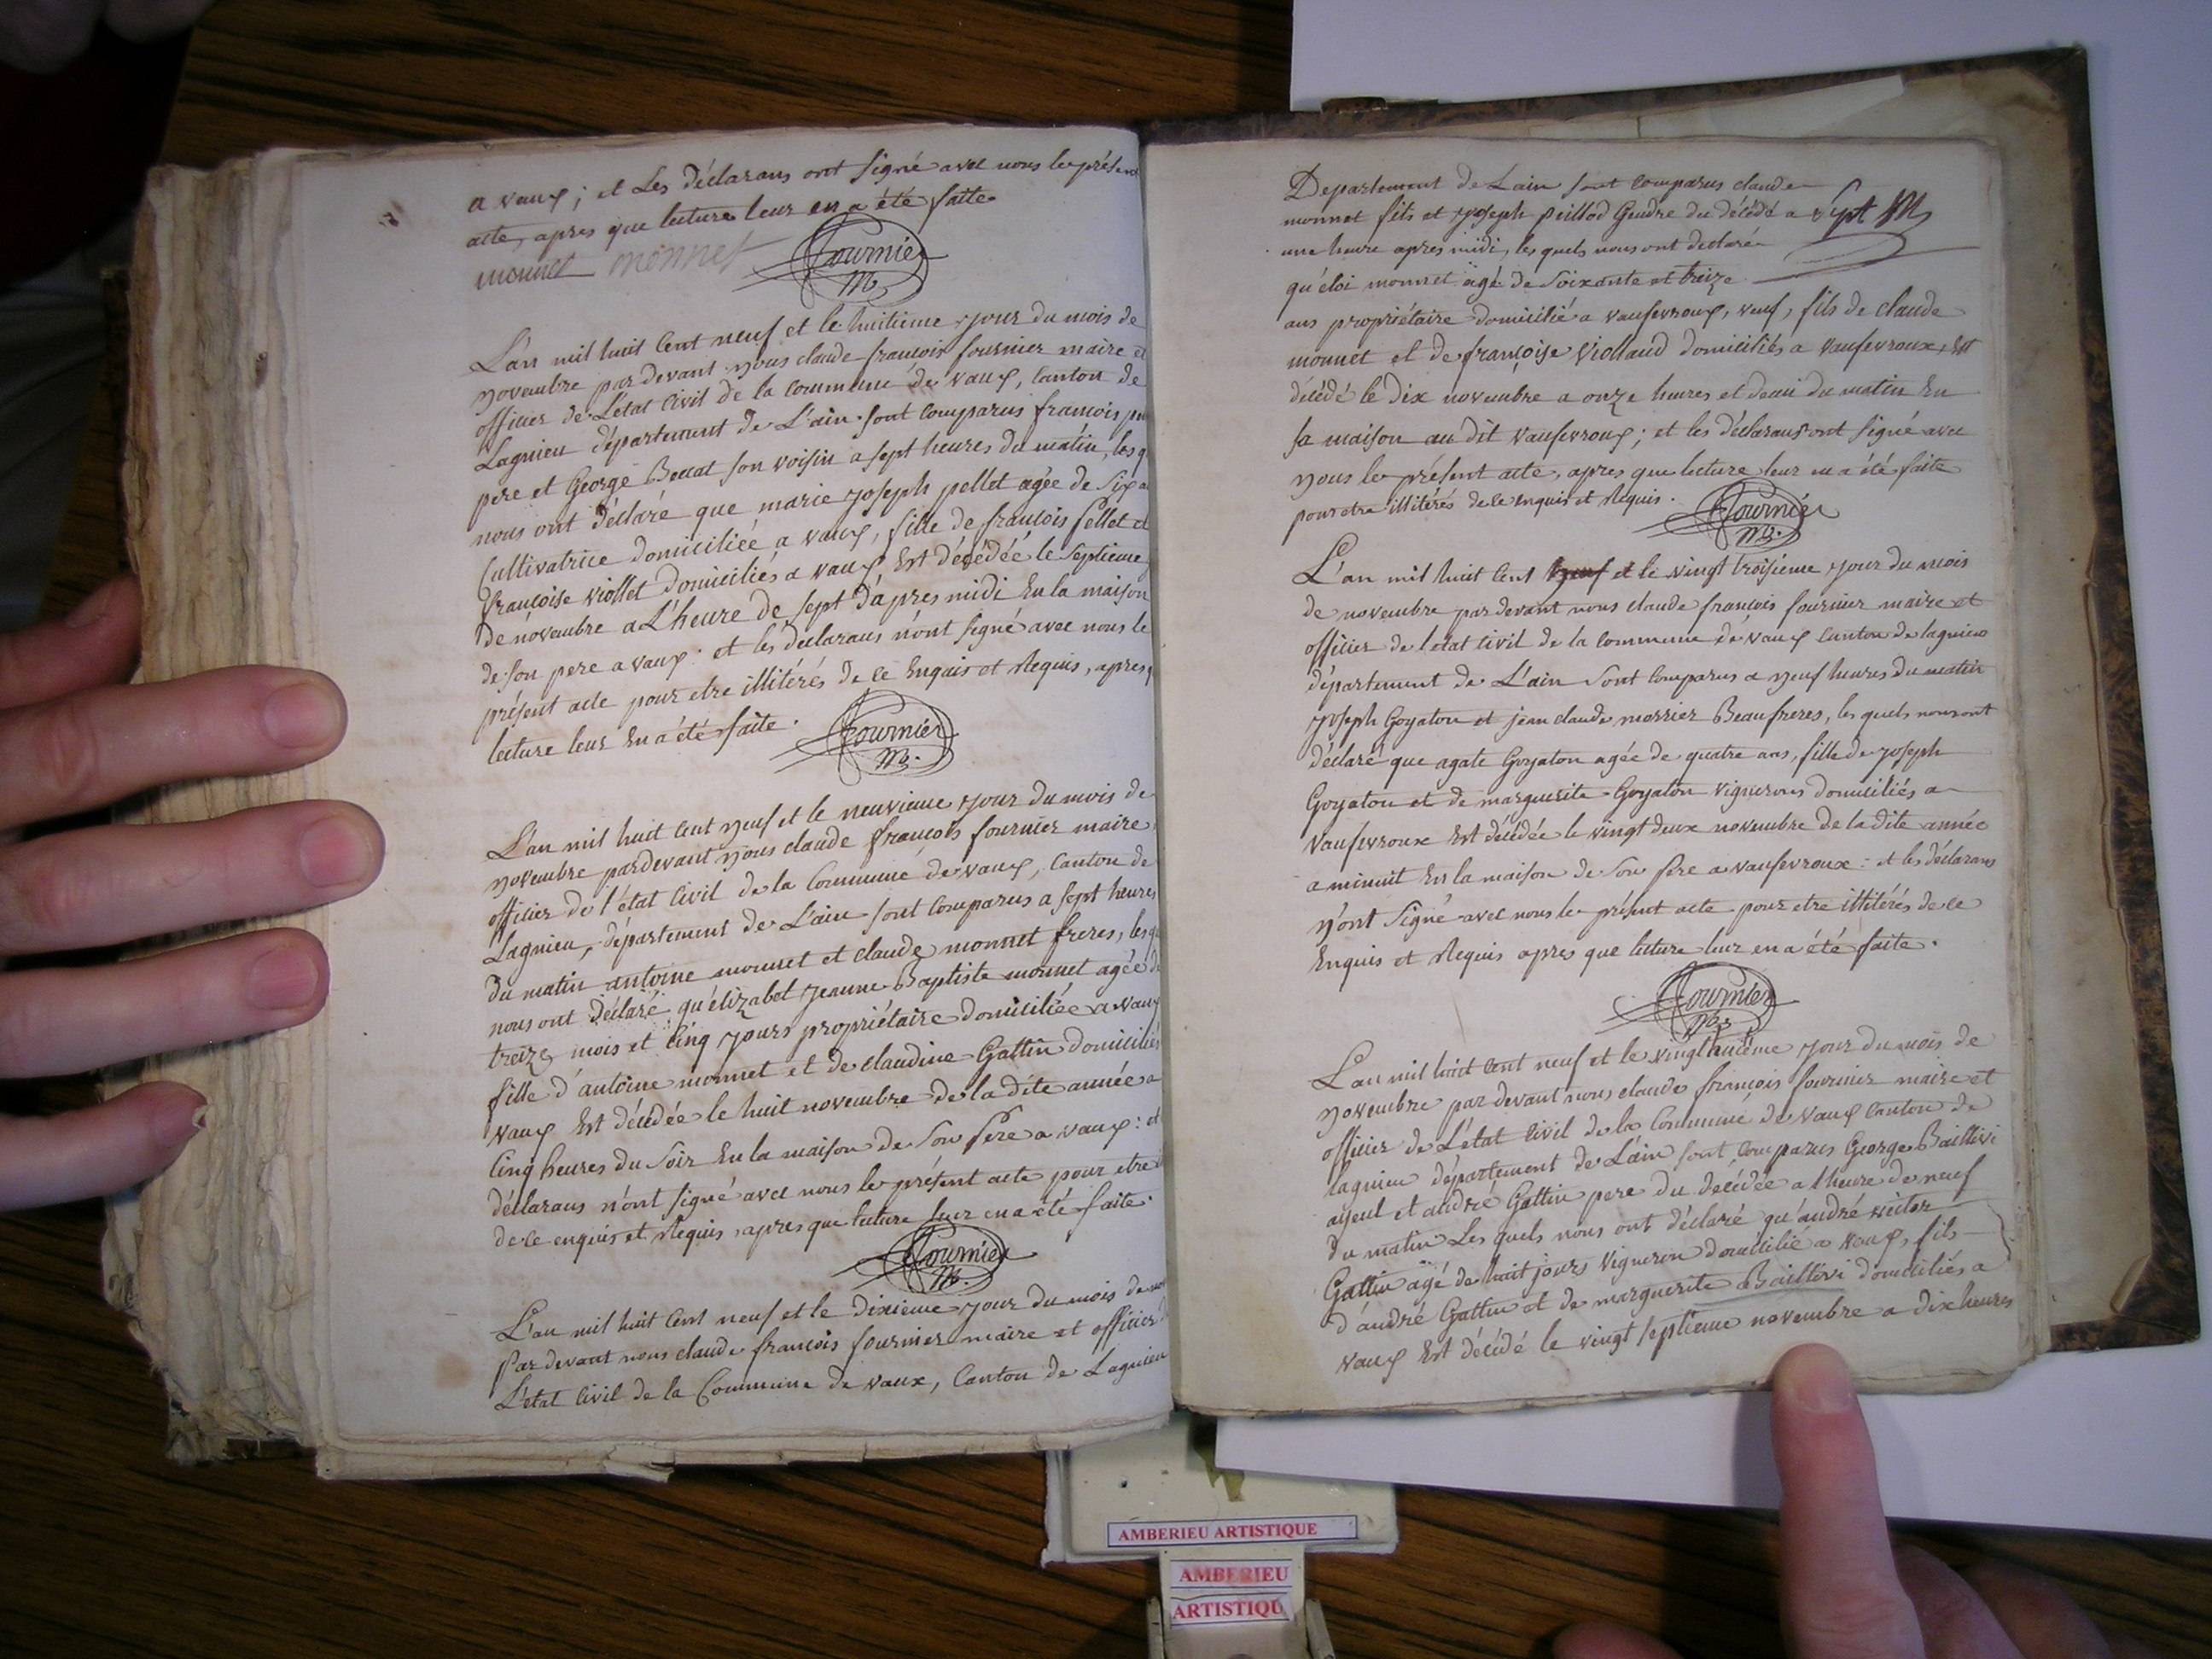 a vaux ; et Les déclarans ont signé avec nous le présent
acte, apres que lecture leur en a été faite
monnet monnet Fournier
M
L'an mil huit Cent neuf et le huitieme jour du mois de
novembre pardevant nous claude françois fournier maire et
officier de L'état Civil de la commune de vaux, Canton de
Lagnieu département de L'ain sont comparus francois
pere et George Bocat son voisin a sept heures du matin, les
nous ont déclaré que marie joseph pellet agée de Six
Cultivatrice domiciliée a vaux, fille de francois pellet et
françoise viollet domiciliés a vaux Est décédée le septieme
de novembre a L'heure de sept d'apres midi En la maison
de son pere a vaux : et les déclarans n'ont signé avec nous le
présent acte pour etre illitérés de ce Enquis et Requis, apres
lecture leur En a été faite .
Fournier
M.
L'an mil huit Cent neuf et le neuvieme jour du mois de
novembre pardevant nous claude françois fournier maire
officier de l'état Civil de la Commune de vaux, Canton de
Lagnieu, département de L'ain sont Comparus a sept heures
du matin antoine monnet et claude monnet freres, les
nous ont déclaré qu'élizabet jeanne Baptiste monnet agée de
treize mois et Cinq jours propriétaire domiciliée a vaux
fille d'antoine monnet et de claudine Gattin domiciliés
vaux Est décédée le huit novembre de la dite année a
Cinq heures du Soir En la maison de Son Pere a vaux : et
déclarans n'ont signé avec nous le présent acte pour etre
de ce enquis et Requis, apres que lecture leur en a été faite .
Fournier
M.
L'an mil huit Cent neuf et le dixieme jour du mois de
Pardevant nous claude francois fournier maire et officier
L'état Civil de la Commune de vaux, Canton de Lagnieu
Departement de Lain sont Comparus claude
monnet fils et joseph peillod Gendre du décédé a Sept M
une heure apres midi, les quels nous ont declaré
qu'éloi monnet agé de Soixante et treize
ans propriétaire domicilié a vaufevroux, veuf, fils de claude
monnet et de françoise viollaud domiciliés a vaufevroux, Est
décédé le dix novembre a onze heures et demi du matin En
sa maison au dit vaufevroux ; et les déclarans ont signé avec
nous le présent acte, apres que lecture leur en a été faite
pour etre illitérés de ce enquis et Requis .
Fournier
M.
L'an mil huit Cent neuf et le vingt troisieme jour du mois
de novembre par devant nous claude francois fournier maire et
officier de létat civil de la commune de vaux Canton de lagnieu
département de L'ain Sont Comparus a neuf heures du matin
joseph Goyaton et jean claude morrier Beaufreres, les quels nous ont
déclaré que agate Goyaton agée de quatre ans, fille de joseph
Goyaton et de marguerite Goyaton vignerons domiciliés a
vaufevroux Est décédée le vingt deux novembre de la dite année
a minuit En la maison de Son Pere a vaufevroux : et les déclarans
n'ont Signé avec nous le présent acte pour etre illitérés de ce
Enquis et Requis apres que lecture leur en a été faite .
Fournier
M
L'an mil huit Cent neuf et le vingt huitieme jour du mois de
novembre par devant nous claude françois fournier maire et
officier de L'état Civil de la Commune de vaux Canton de
lagnieu département de Lain sont Comparus George Baillivi
ayeul et andré Gattin pere du décédée a l'heure de neuf
du matin Les quels nous ont déclaré qu'andré victor
Gattin agé de huit jours Vigneron domicilié a vaux, fils
d'andré Gattin et de marguerite Baillivi domiciliés a
vaux Est décédé le vingt septieme novembre a dix heures
AMBERIEU ARTISTIQUE
AMBERIEU
ARTISTIQU